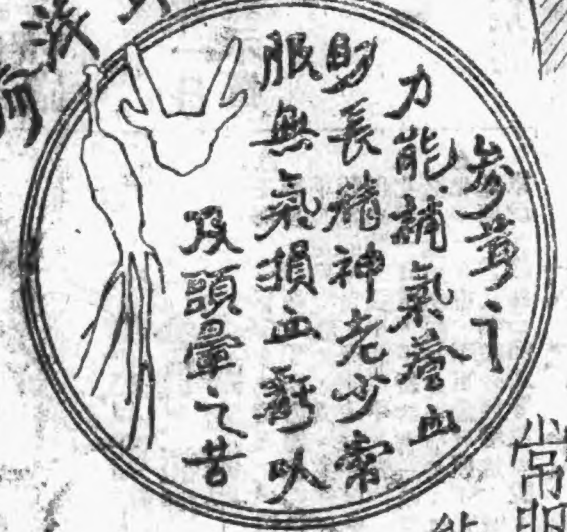 參茸之
力能補氣養血
助長精神老少常
服無氣損血虧以
及頭暈之苦
常明